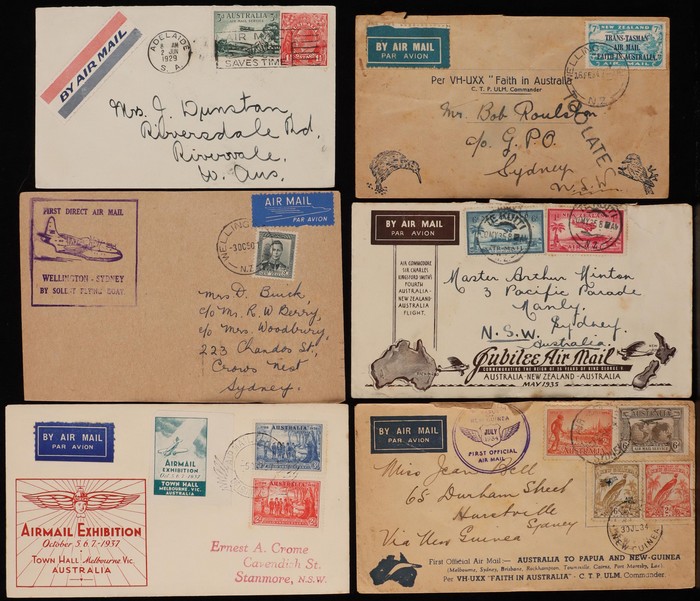 BY AIR MAIL
ADELAIDE
8 AM
2 JUN
1929
S.A.
AUSTRALIA
AIR MAIL
SAVES TIME
Mrs. J. Dunstan
Riversdale Rd,
Rivervale.
W. Aus.
BY AIR MAIL
PAR AVION
NEW ZEALAND
TRANS-TASMAN
AIR MAIL
"FAITH IN AUSTRALIA"
WELLINGTON
N.Z.
Per VH-UXX "Faith in Australia"
C. T. P. ULM, Commander
TOO LATE
Mr. Bob Roulston
c/o G.P.O.
Sydney
N.S.W.
FIRST DIRECT AIR MAIL
WELLINGTON - SYDNEY
BY SOLENT FLYING BOAT.
AIR MAIL
PAR AVION
WELLINGTON
-3OC50
N.Z.
Mrs D. Buick,
c/o Mr. R. W Derry,
c/o Mrs. Woodbury,
223 Chandos St.,
Crows Nest
Sydney.
BY AIR MAIL
PAR AVION
AIR COMMODORE
SIR CHARLES
KINGSFORD SMITH'S
FOURTH
AUSTRALIA-
NEW ZEALAND
AUSTRALIA
FLIGHT.
AIR MAIL
N.Z.
Master Arthur Hinton
3 Pacific Parade
Manly.
Sydney.
N.S.W.
Australia.
Jubilee Air Mail
COMMEMORATING THE REIGN OF 25 YEARS OF KING GEORGE V
AUSTRALIA-NEW ZEALAND-AUSTRALIA
MAY 1935
BY AIR MAIL
PAR AVION
AIRMAIL
EXHIBITION
Oct. 5.6.7-1937
TOWN HALL
MELBOURNE, VIC.
AUSTRALIA
AUSTRALIA
AUSTRALIA
AIRMAIL EXHIBITION
October, 5.6.7.-1937
TOWN HALL Melbourne Vic.
AUSTRALIA
Ernest A. Crome
Cavendish St.
Stanmore, N.S.W.
BY AIR MAIL
PAR AVION
NEW GUINEA
JULY
1934
FIRST OFFICIAL
AIR MAIL
AUSTRALIA
6d
NEW GUINEA
30 JUL 34
Miss Jean Bell
65 Durham Street
Hurstville
Sydney
Via New Guinea
First Official Air Mail — AUSTRALIA TO PAPUA AND NEW-GUINEA
(Melbourne, Sydney, Brisbane, Rockhampton, Townsville, Cairns, Port Moresby, Lae).
Per VH-UXX "FAITH IN AUSTRALIA" - C. T. P. ULM, Commander.